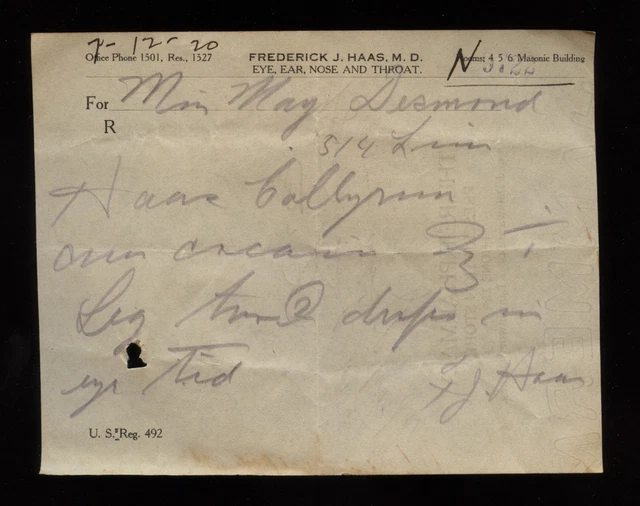 7-12-20
Office Phone 1501, Res., 1527
FREDERICK J. HAAS, M. D. Rooms; 4 5 6 Masonic Building
EYE, EAR, NOSE AND THROAT.
N
For Miss May Desmond
R
514 Linn
Haas Collyrium
cum cocain ℥ i
Sig two drops in
eye tid
F J Haas
U. S. Reg. 492